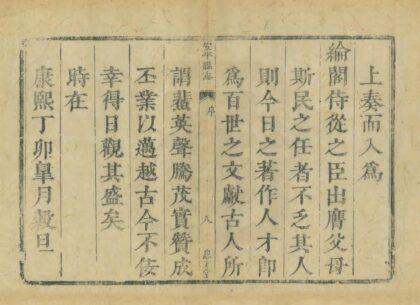 上奏而入爲
綸閣侍從之臣出膺父母
斯民之任者不乏其人
則今日之著作人才卽
爲百世之文獻古人所
平縣志 序 八
謂蜚英聲騰茂實贊成
丕業以邁越古今不佞
幸得日觀其盛矣
時在
康熙丁卯皐月穀旦